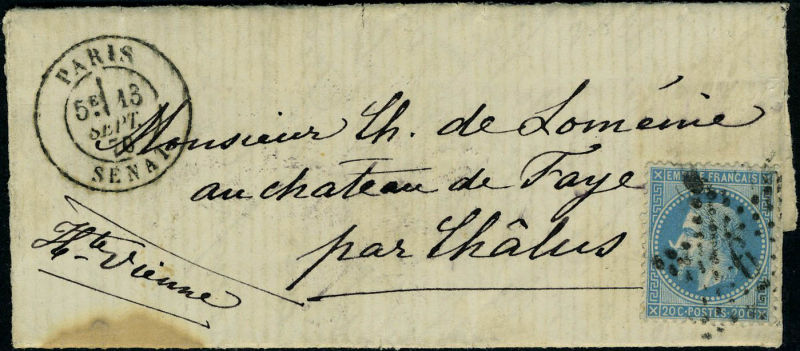 PARIS
5E 13
SEPT.
70
SENAT
Monsieur Ch. de Loménie
au chateau de Faye
par Châlus
Hte Vienne
EMPIRE FRANCAIS
20 C. POSTES 20 C.